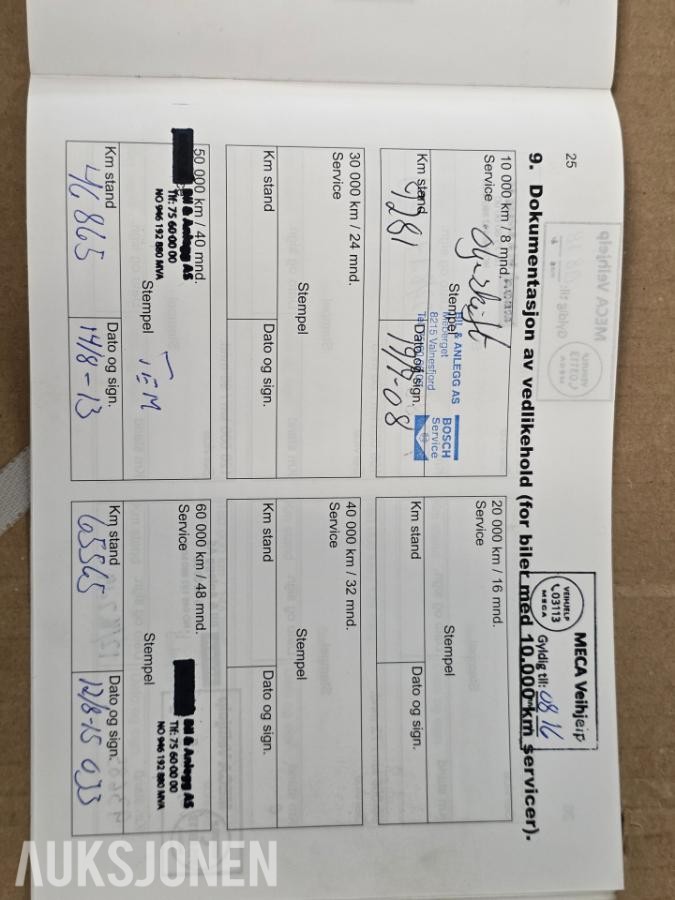 25
9. Dokumentasjon av vedlikehold (for biler med 10.000 km servicer).
MECA Veihjelp
VEIHJELP
03113
MECA
Gyldig til: 08 16
10 000 km / 8 mnd.
Service
Oljeskift
Stempel
BIL & ANLEGG AS
8215 Valnesfjord
BOSCH
Service
Km stand
9281
Dato og sign.
20 000 km / 16 mnd.
Service
Stempel
Km stand
Dato og sign.
30 000 km / 24 mnd.
Service
Stempel
Km stand
Dato og sign.
40 000 km / 32 mnd.
Service
Stempel
Km stand
Dato og sign.
50 000 km / 40 mnd.
Bil & Anlegg AS
Tlf: 75 60 00 00
NO 946 192 880 MVA
Stempel
Km stand
46865
Dato og sign.
14/8-13
60 000 km / 48 mnd.
Service
Bil & Anlegg AS
Tlf: 75 60 00 00
NO 946 192 880 MVA
Stempel
Km stand
65565
Dato og sign.
12/8-15
AUKSJONEN